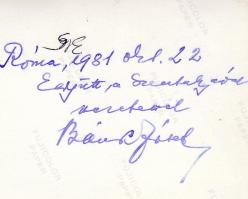 Róma, 1981 okt. 22
Együtt a Szentatyával
szeretettel
Bánk József